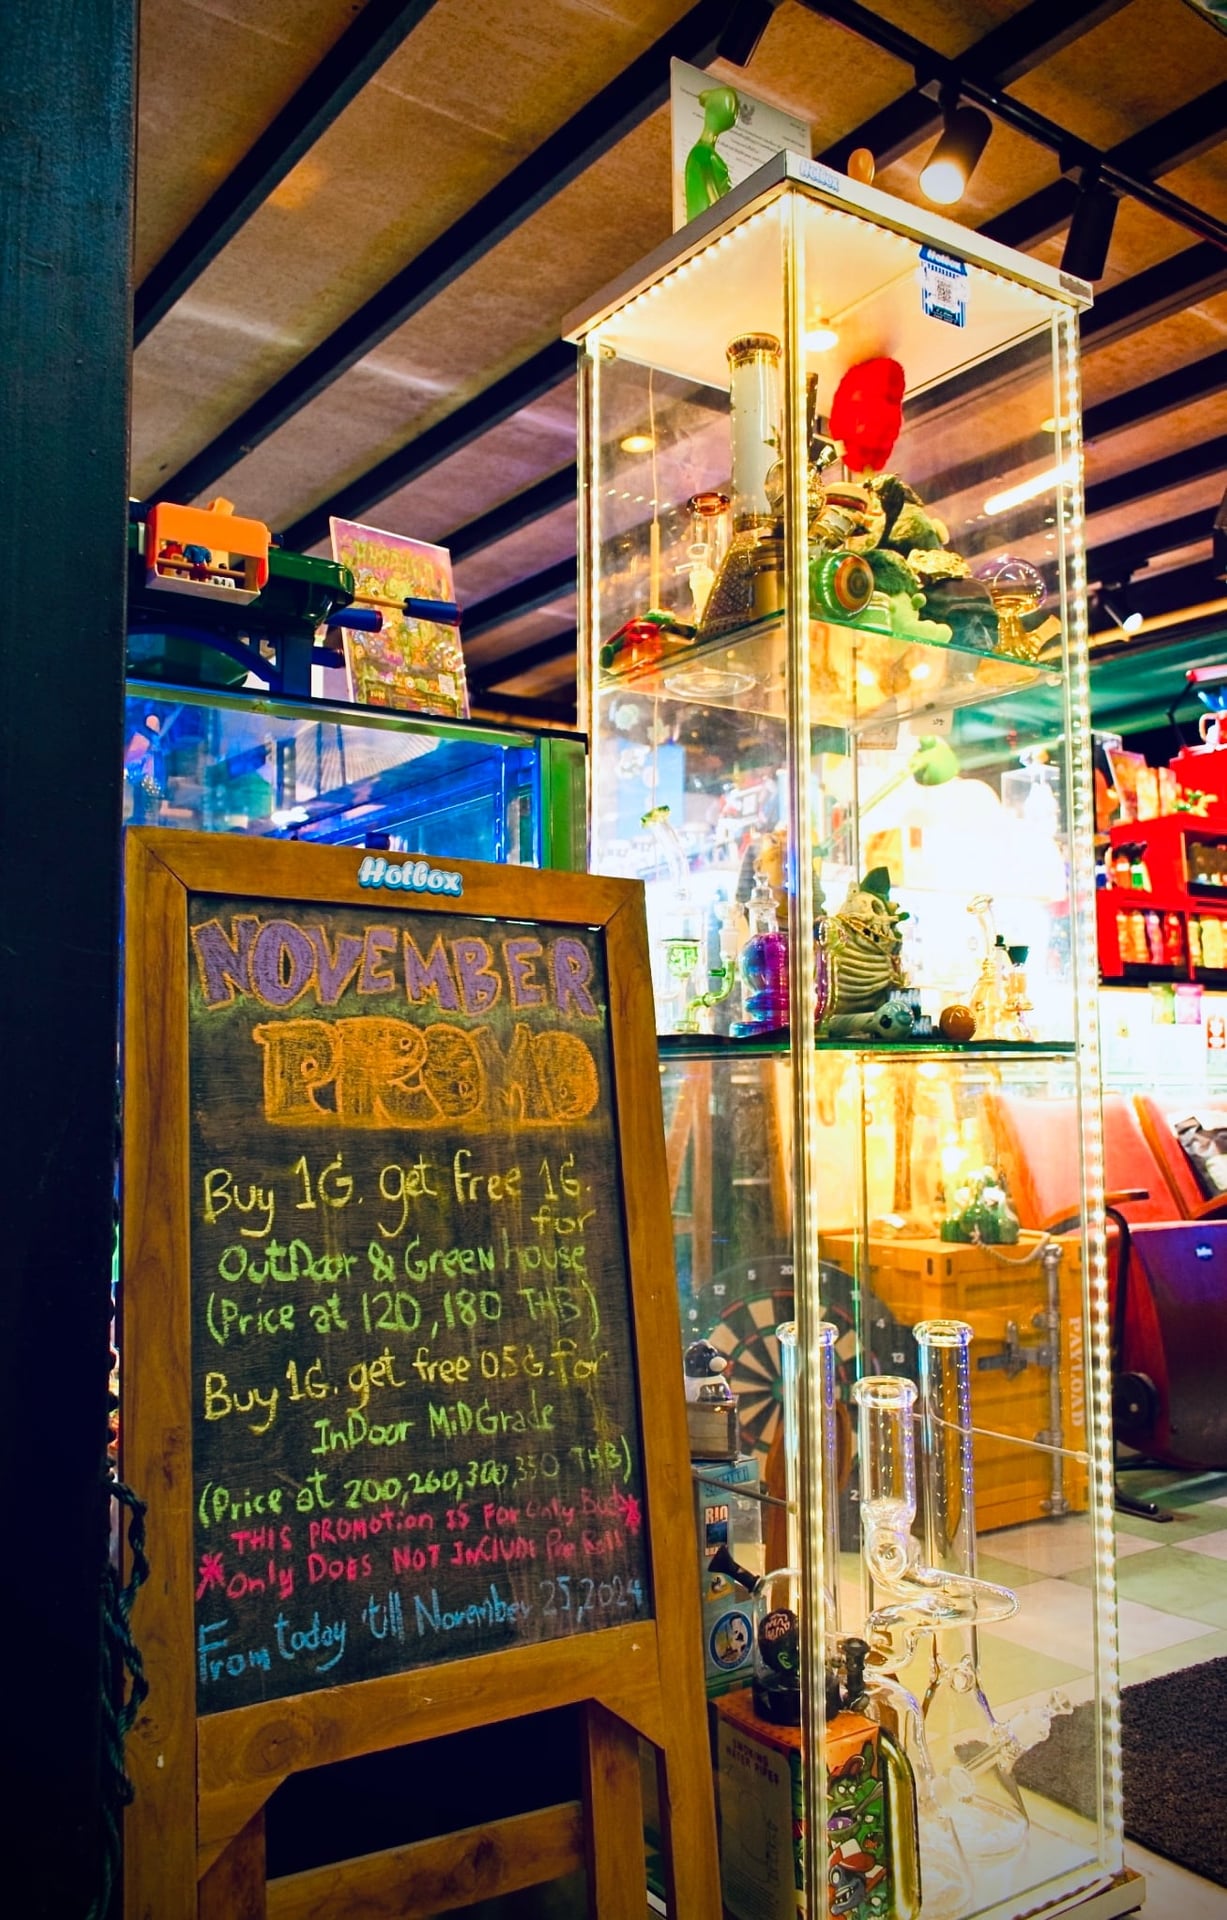 Hotbox
Hotbox
Hotbox
NOVEMBER
PROMO
Buy 1G. get free 1G.
for
OutDoor & Green house
(Price at 120,180 THB)
Buy 1G. get free 0.5G. for
InDoor MiDGrade
(Price at 200,260,300,350 THB)
THIS PROMOTION IS FOR Only Buds
*Only DOES NOT INCLUDE Pre Roll*
From today 'till November 25,2024
PAYLOAD
12 5 20 1
9 4
13
SMOKING
WATER PIPES